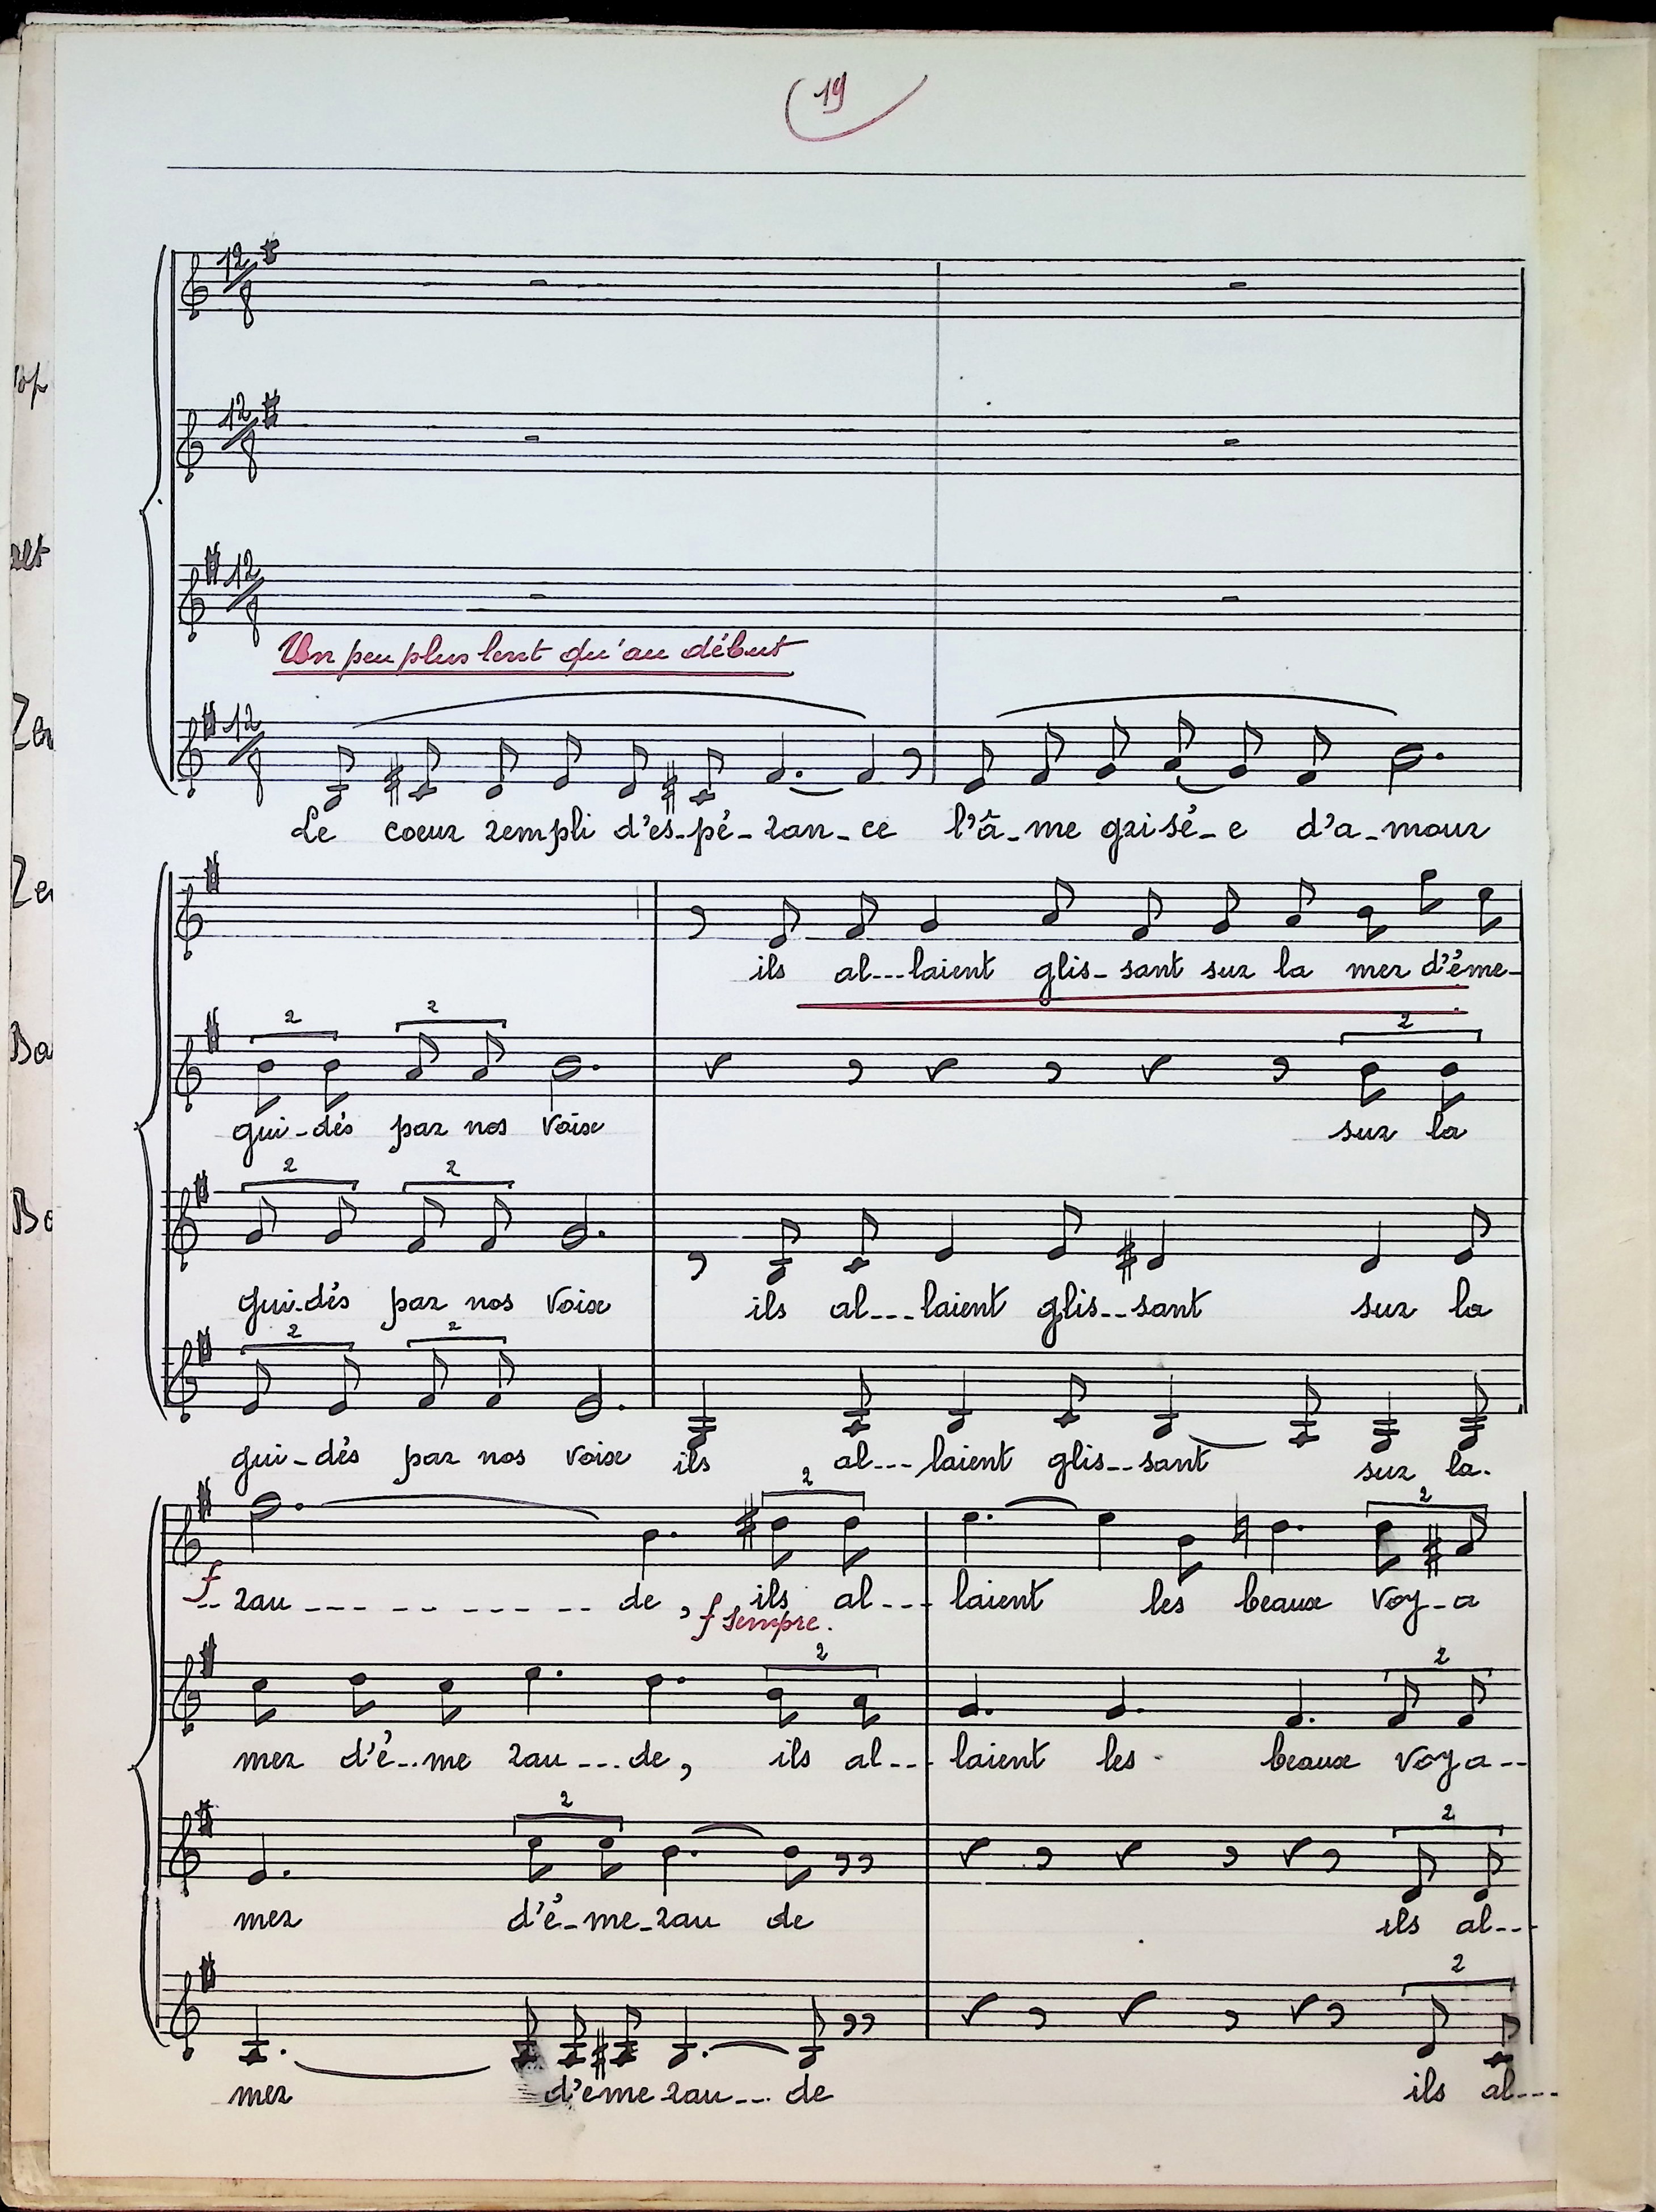 19
12/8
12/8
12/8
Un peu plus lent qu'au début
12/8
Le coeur rempli d'es-pé-ran-ce l'â-me grisé-e d'a-mour
ils al---laient glis-sant sur la mer d'éme-
2 2 2
gui-dés par nos voix sur la
2 2
gui-dés par nos voix ils al---laient glis--sant sur la
2 2
gui-dés par nos voix ils al---laient glis--sant sur la.
2 2
f --rau --------- de, ils al---laient les beaux voy-a
f sempre.
2 2
mer d'é--me rau ---de, ils al---laient les - beaux voya--
2 2
mer d'é-me-rau de ils al--
2
mer d'eme rau--- de ils al---
Zer
Ze
Ba